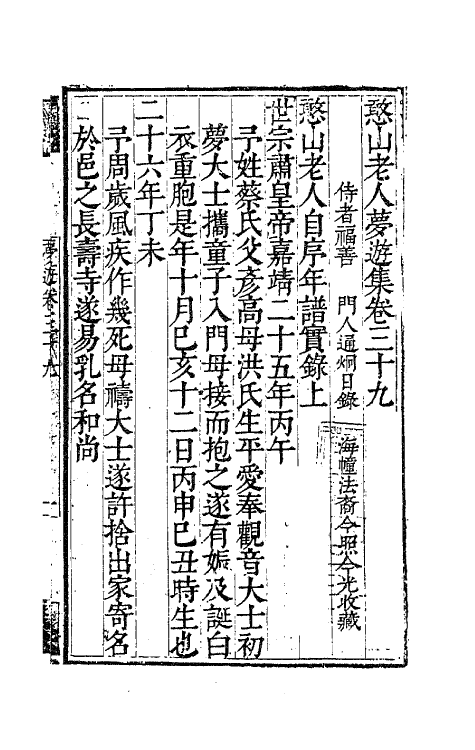 憨山老人夢遊集卷三十九
侍者福善　門人通烱日錄　海幢法裔今照今光收藏
憨山老人自序年譜實錄上
世宗肅皇帝嘉靖二十五年丙午
予姓蔡氏父彥高母洪氏生平愛奉觀音大士初
夢大士攜童子入門母接而抱之遂有娠及誕白
衣重胞是年十月己亥十二日丙申己丑時生也
二十六年丁未
予周歲風疾作幾死母禱大士遂許捨出家寄名
於邑之長壽寺遂易乳名和尚
夢遊卷三十九